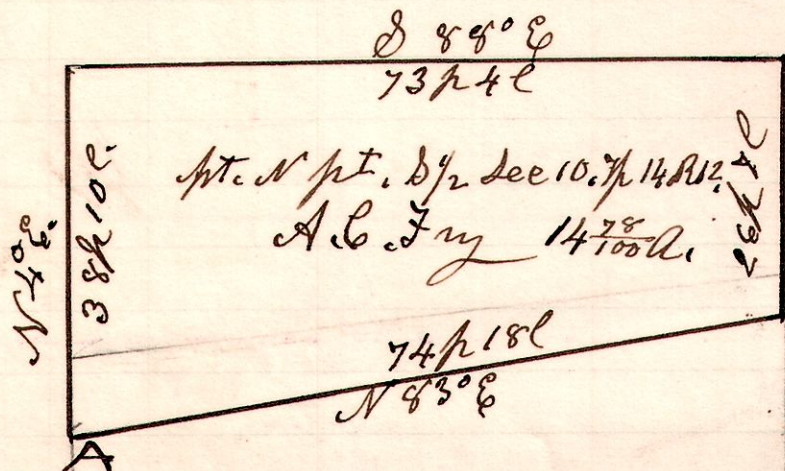 S 88° E
73 p 4 l
N 4° E
38 p 10 l.
pt. N pt. S ½ Sec 10. Tp 14 R 12.
A. C. Fry 14 78/100 A.
26 p 4 l
74 p 18 l
N 83° E
A